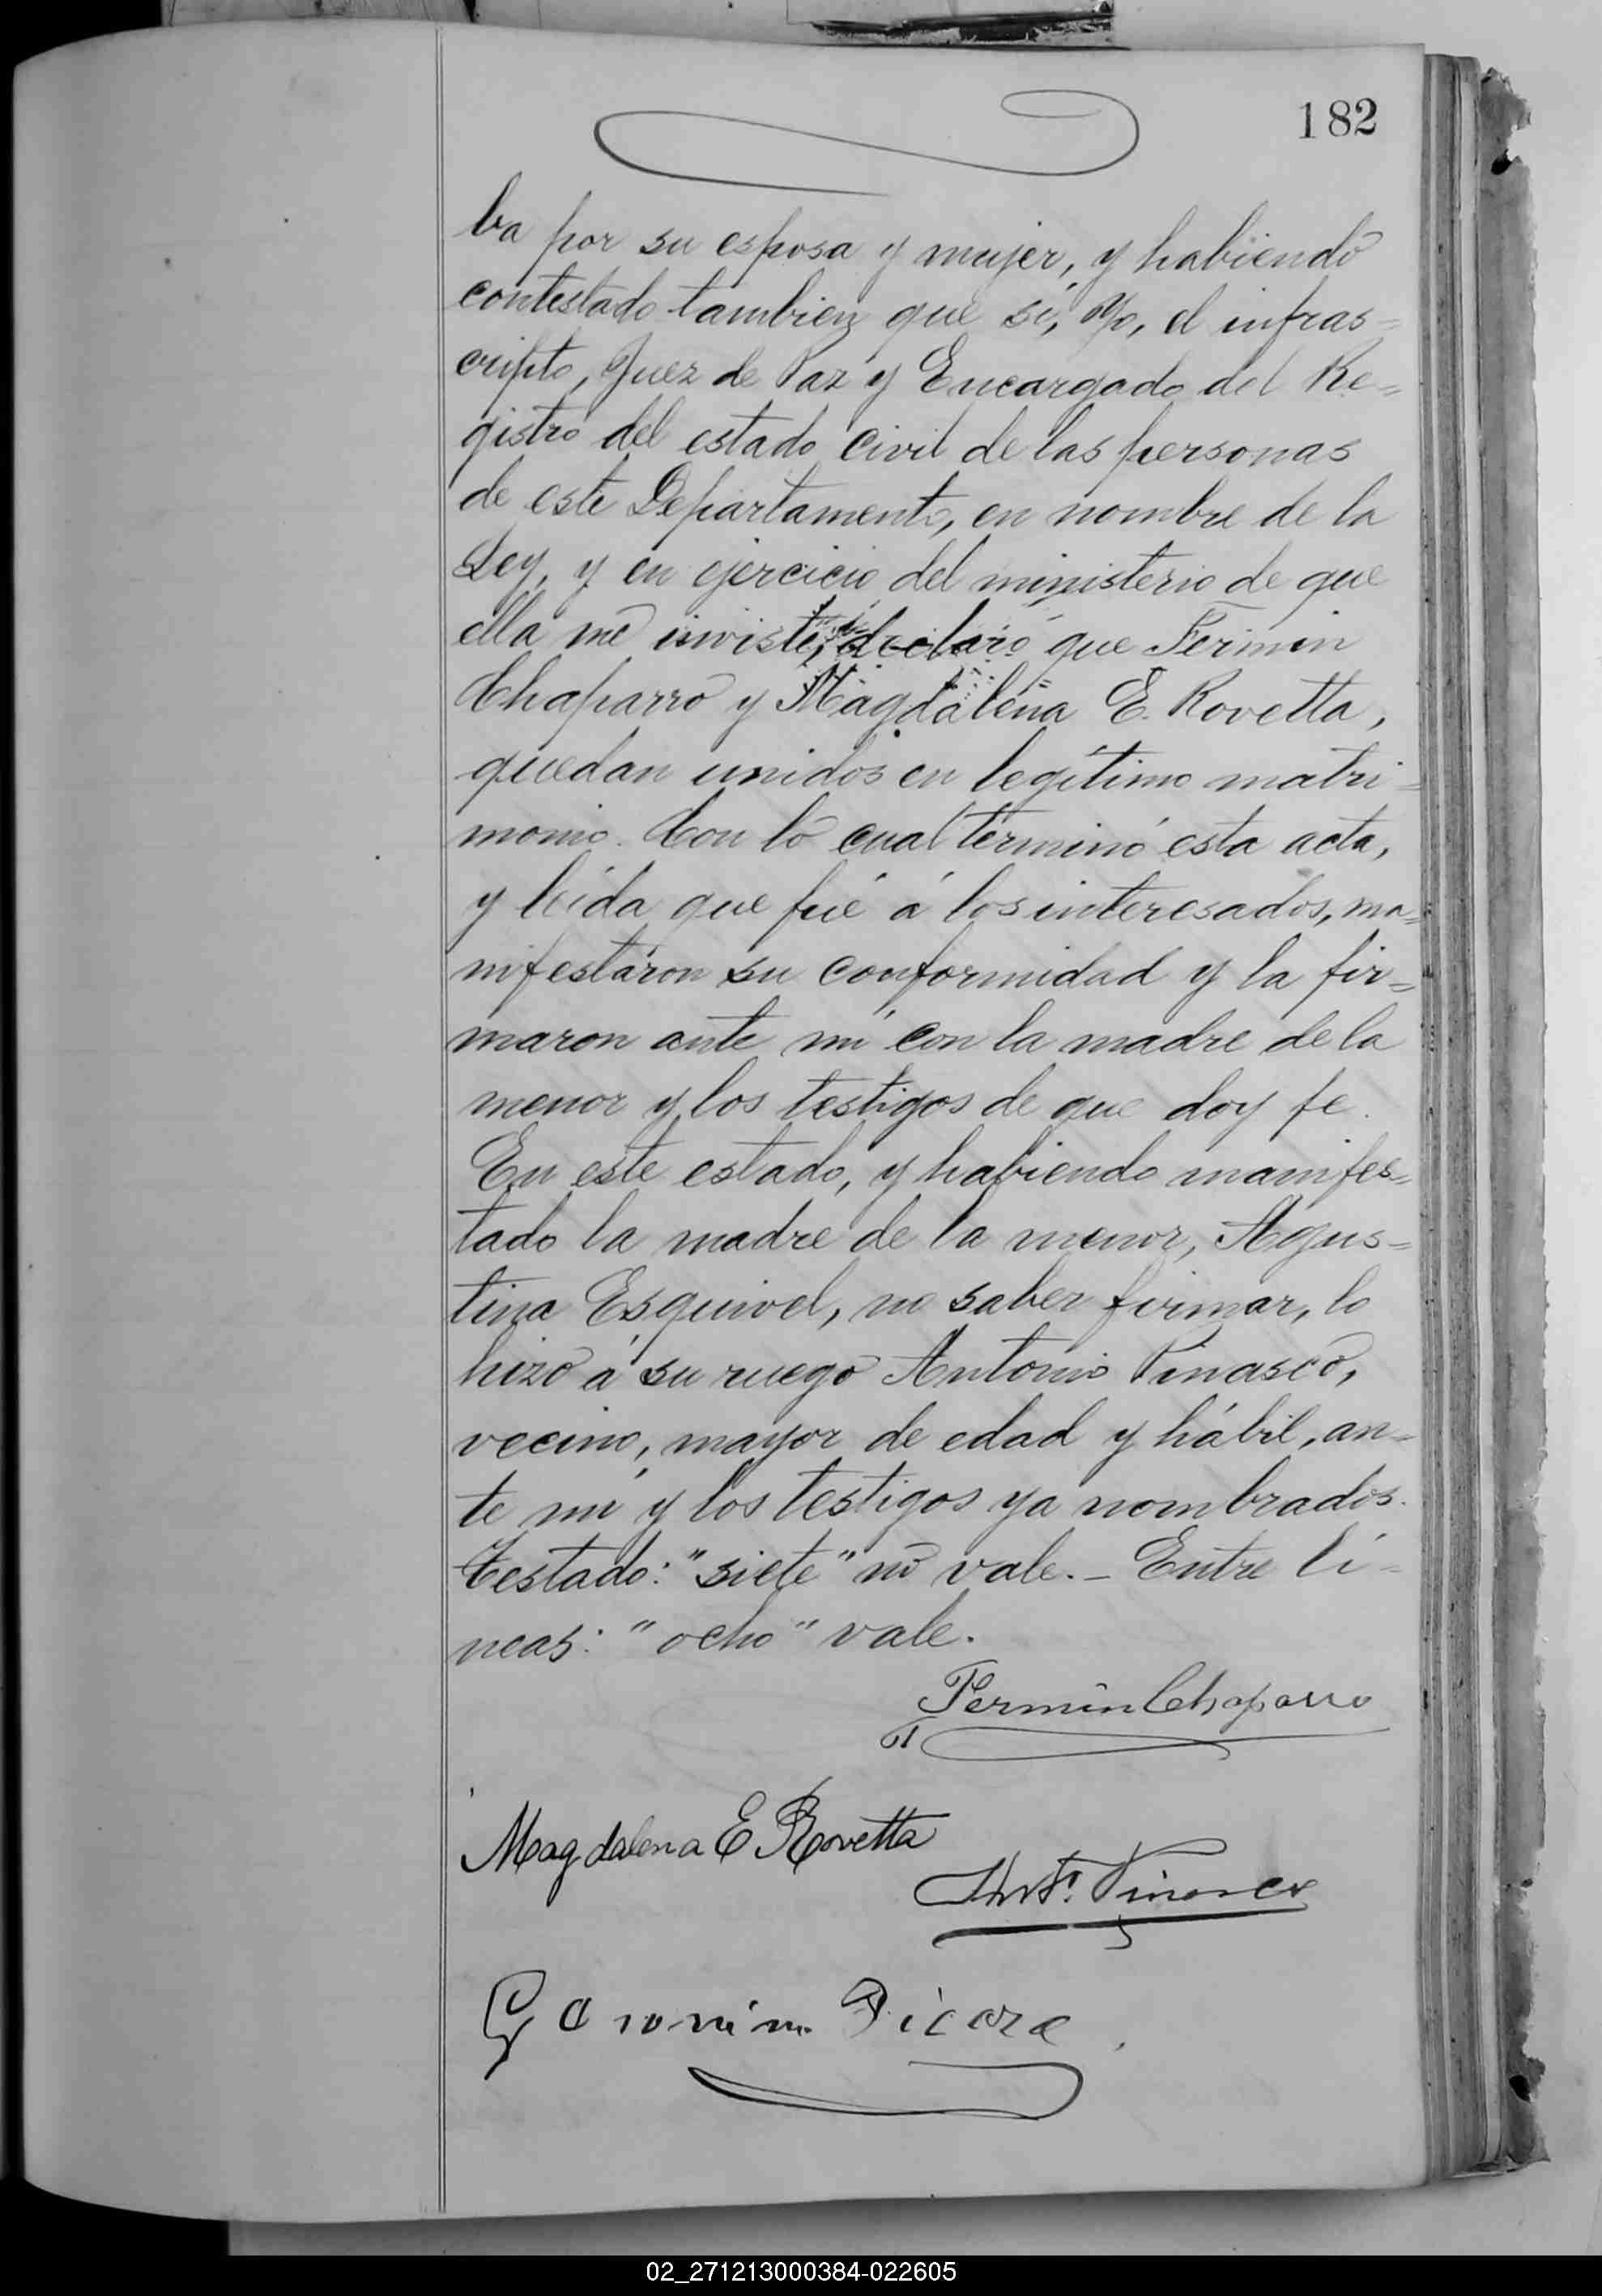 182
ba por su esposa y mujer, y habiendo
contestado tambien que si, Yo, el infras=
cripto, Juez de Paz y Encargado del Re=
gistro del estado civil de las personas
de este Departamento, en nombre de la
Ley, y en ejercicio del ministerio de que
ella me inviste, declaro que Fermin
Chaparro y Magdalena E. Rovetta,
quedan unidos en legítimo matri=
monio. Con lo cual terminó esta acta,
y leida que fué á los interesados, ma=
nifestaron su conformidad y la fir=
maron ante mi con la madre de la
menor y los testigos de que doy fe.
En este estado, y habiendo manifes=
tado la madre de la menor, Agus=
tina Esquivel, no saber firmar, lo
hizo á su ruego Antonio Pinasco,
vecino, mayor de edad y hábil, an=
te mi y los testigos ya nombrados.
Testado: "siete" no vale.- Entre lí=
neas: "ocho" vale.
Fermin Chaparro
Magdalena E Rovetta
Anto. Pinasco
02_271213000384-022605